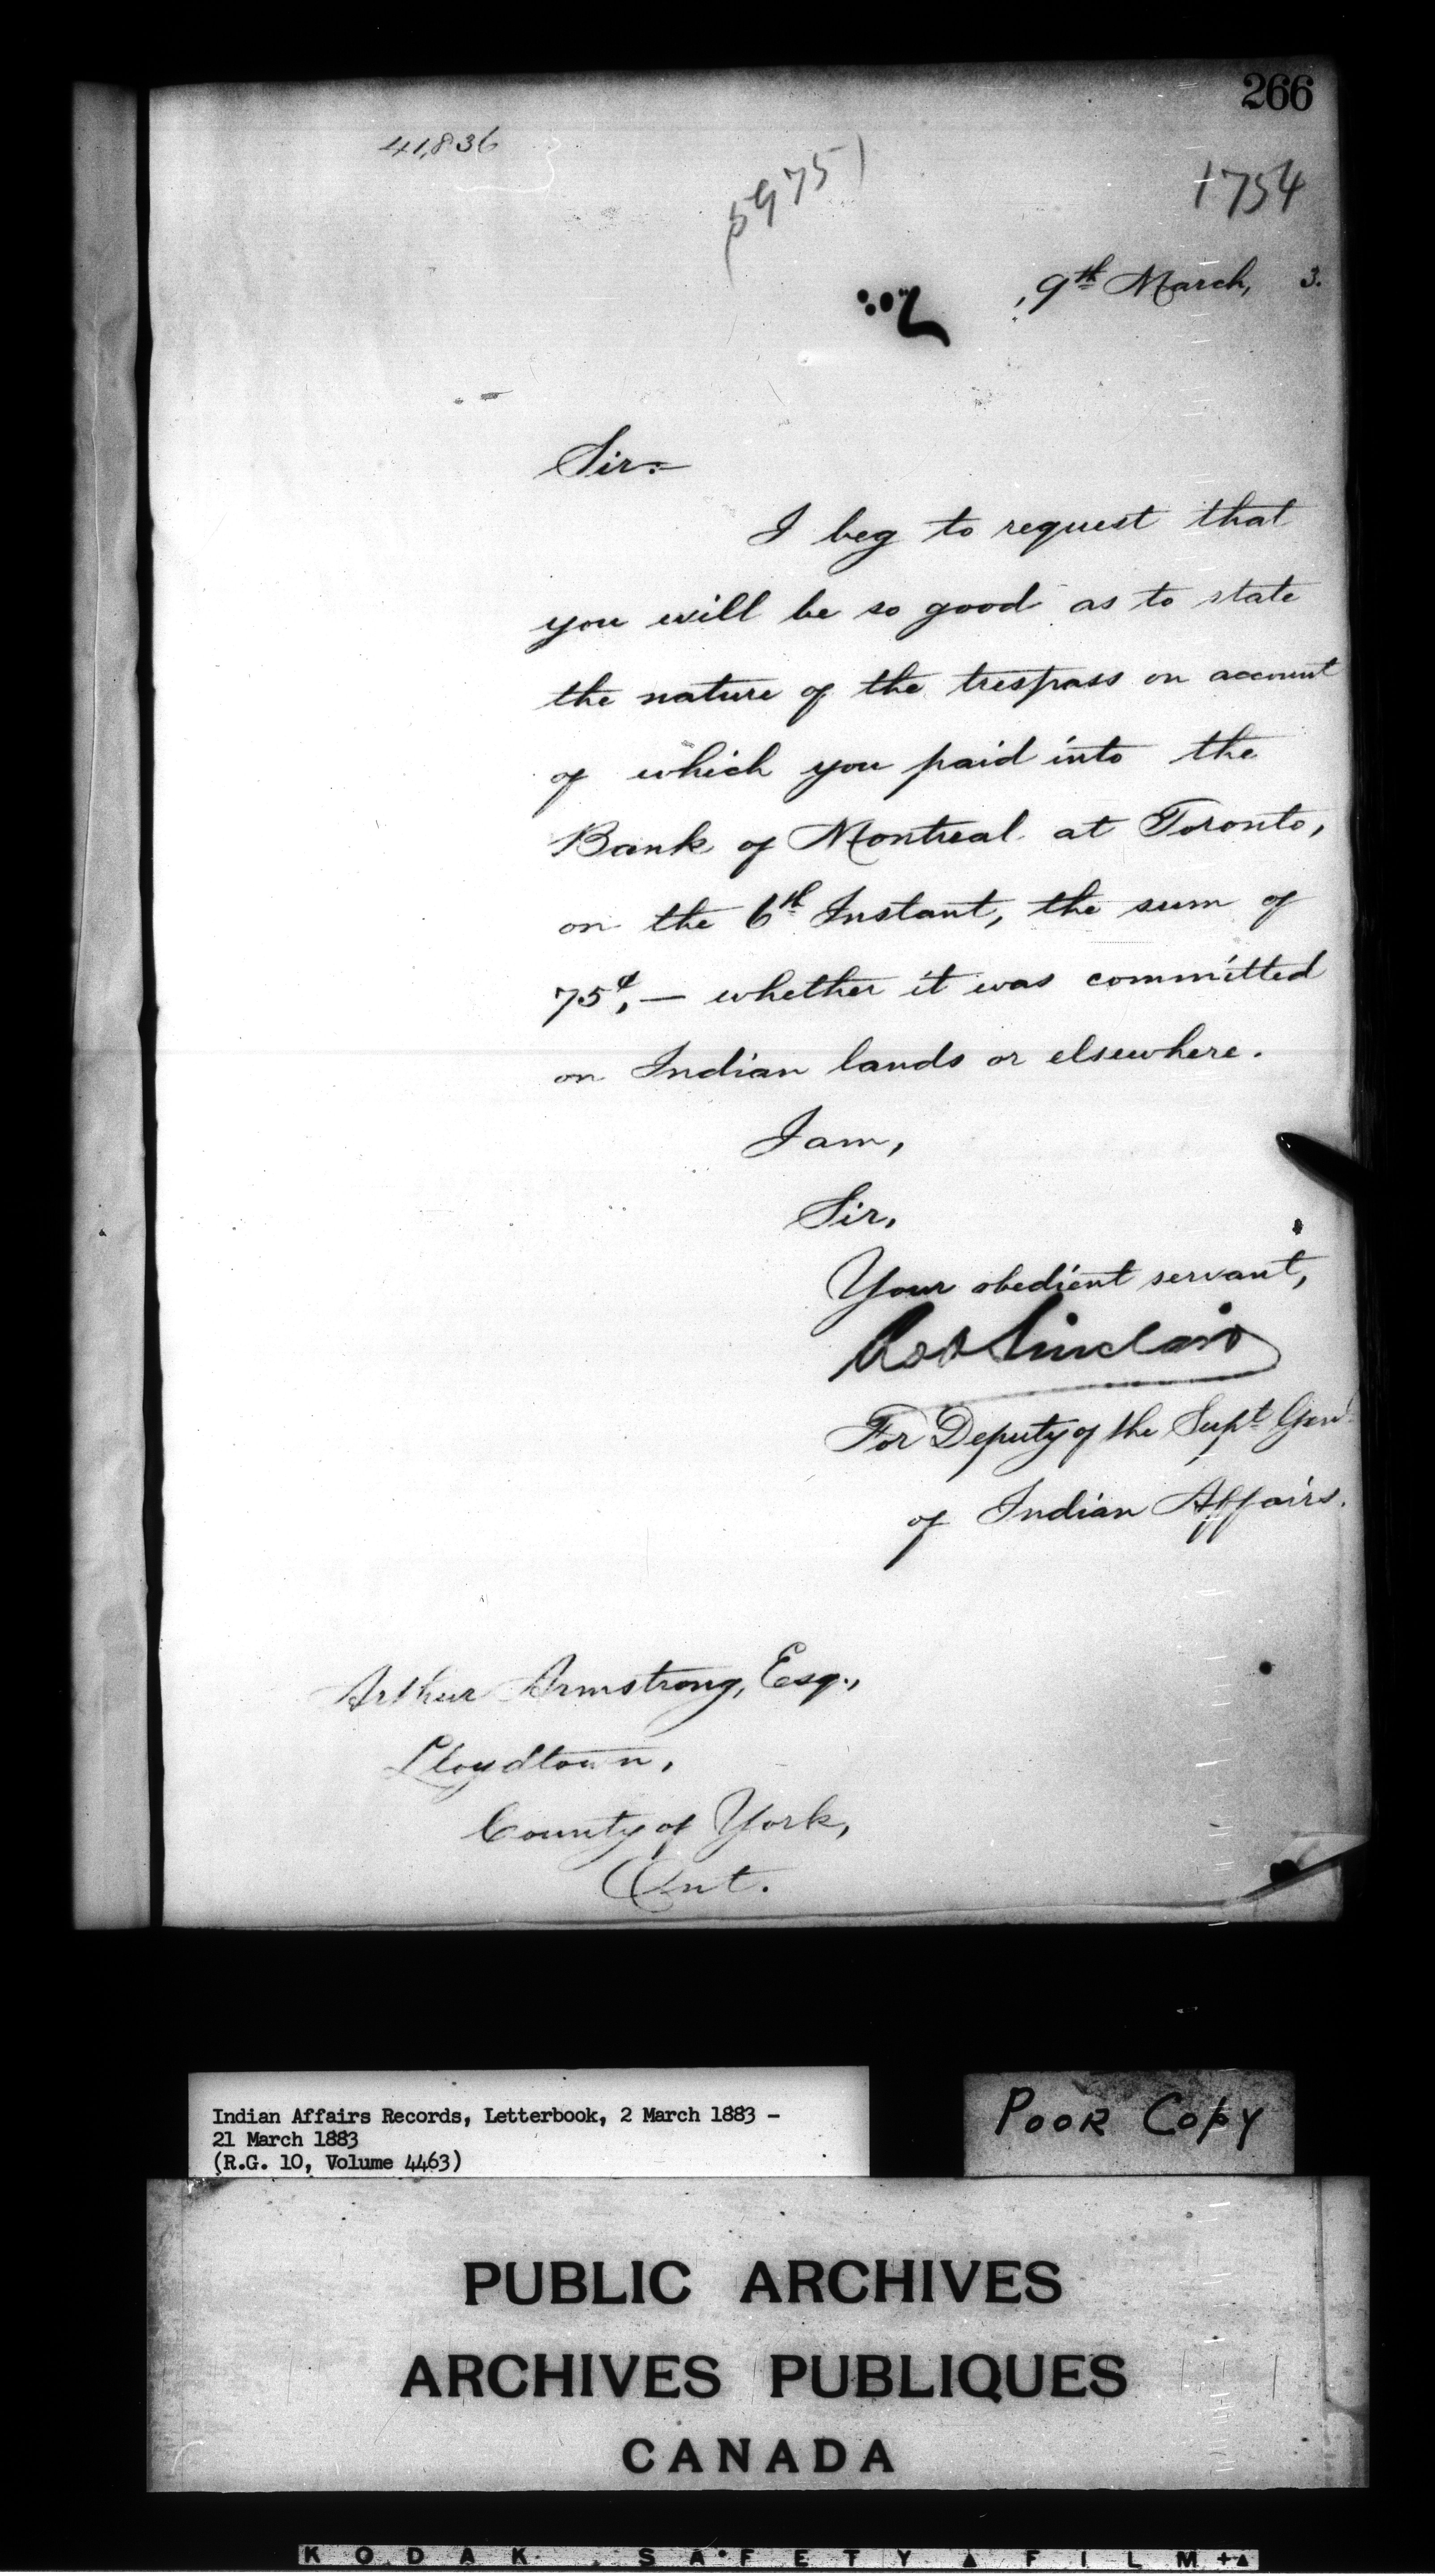 266
41,836
5975
1754
9th March, 3.
Sir:
I beg to request that
you will be so good as to state
the nature of the trespass on account
of which you paid into the
Bank of Montreal at Toronto,
on the 6th Instant, the sum of
75¢, — whether it was committed
on Indian lands or elsewhere.
I am,
Sir,
Your obedient servant,
Robt Sinclair
For Deputy of the Supt Genl
of Indian Affairs.
Arthur Armstrong, Esq.,
Lloydtown,
County of York,
Ont.
Indian Affairs Records, Letterbook, 2 March 1883 -
21 March 1883
(R.G. 10, Volume 4463)
POOR COPY
PUBLIC ARCHIVES
ARCHIVES PUBLIQUES
CANADA
KODAK SAFETY ▲ FILM +▲